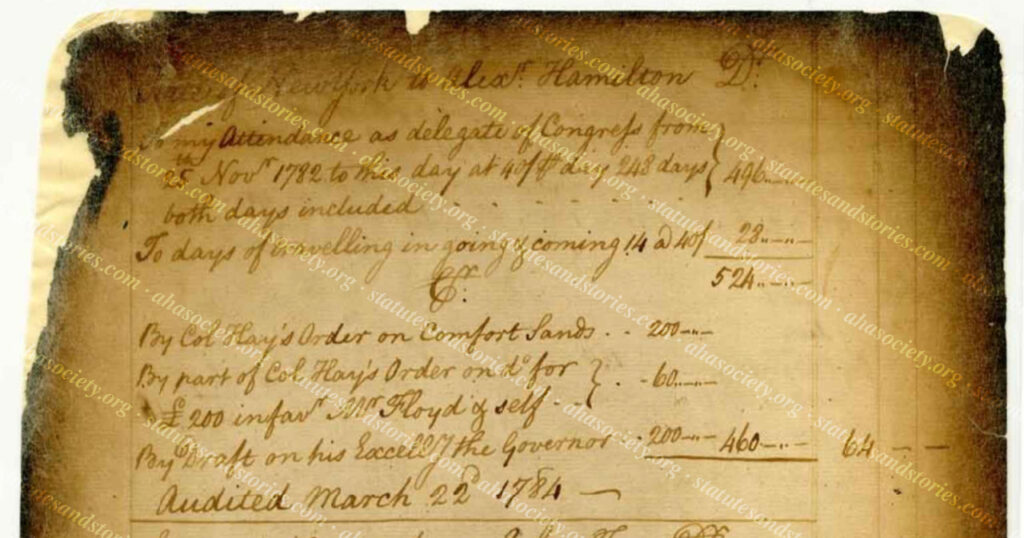 State of New York to Alexr. Hamilton Dr.
To my Attendance as delegate of Congress from
25th Novr 1782 to this day at 40/ ⅌ day 248 days } 496.. — .. —
both days included
To days of travelling in going & coming 14 a 40/ 28.. — .. —
524.. — .. —
Cr.
By Col Hay's Order on Comfort Sands . . 200 — .. —
By part of Col. Hay's Order on do for } . - 60.. — .. —
£ 200 in favr Mr Floyd & self - -
By Draft on his Excelly the Governor . . 200 — .. — 460 — .. — 64 — —
Audited March 22d 1784 —
statutesandstories.com · ahasociety.org